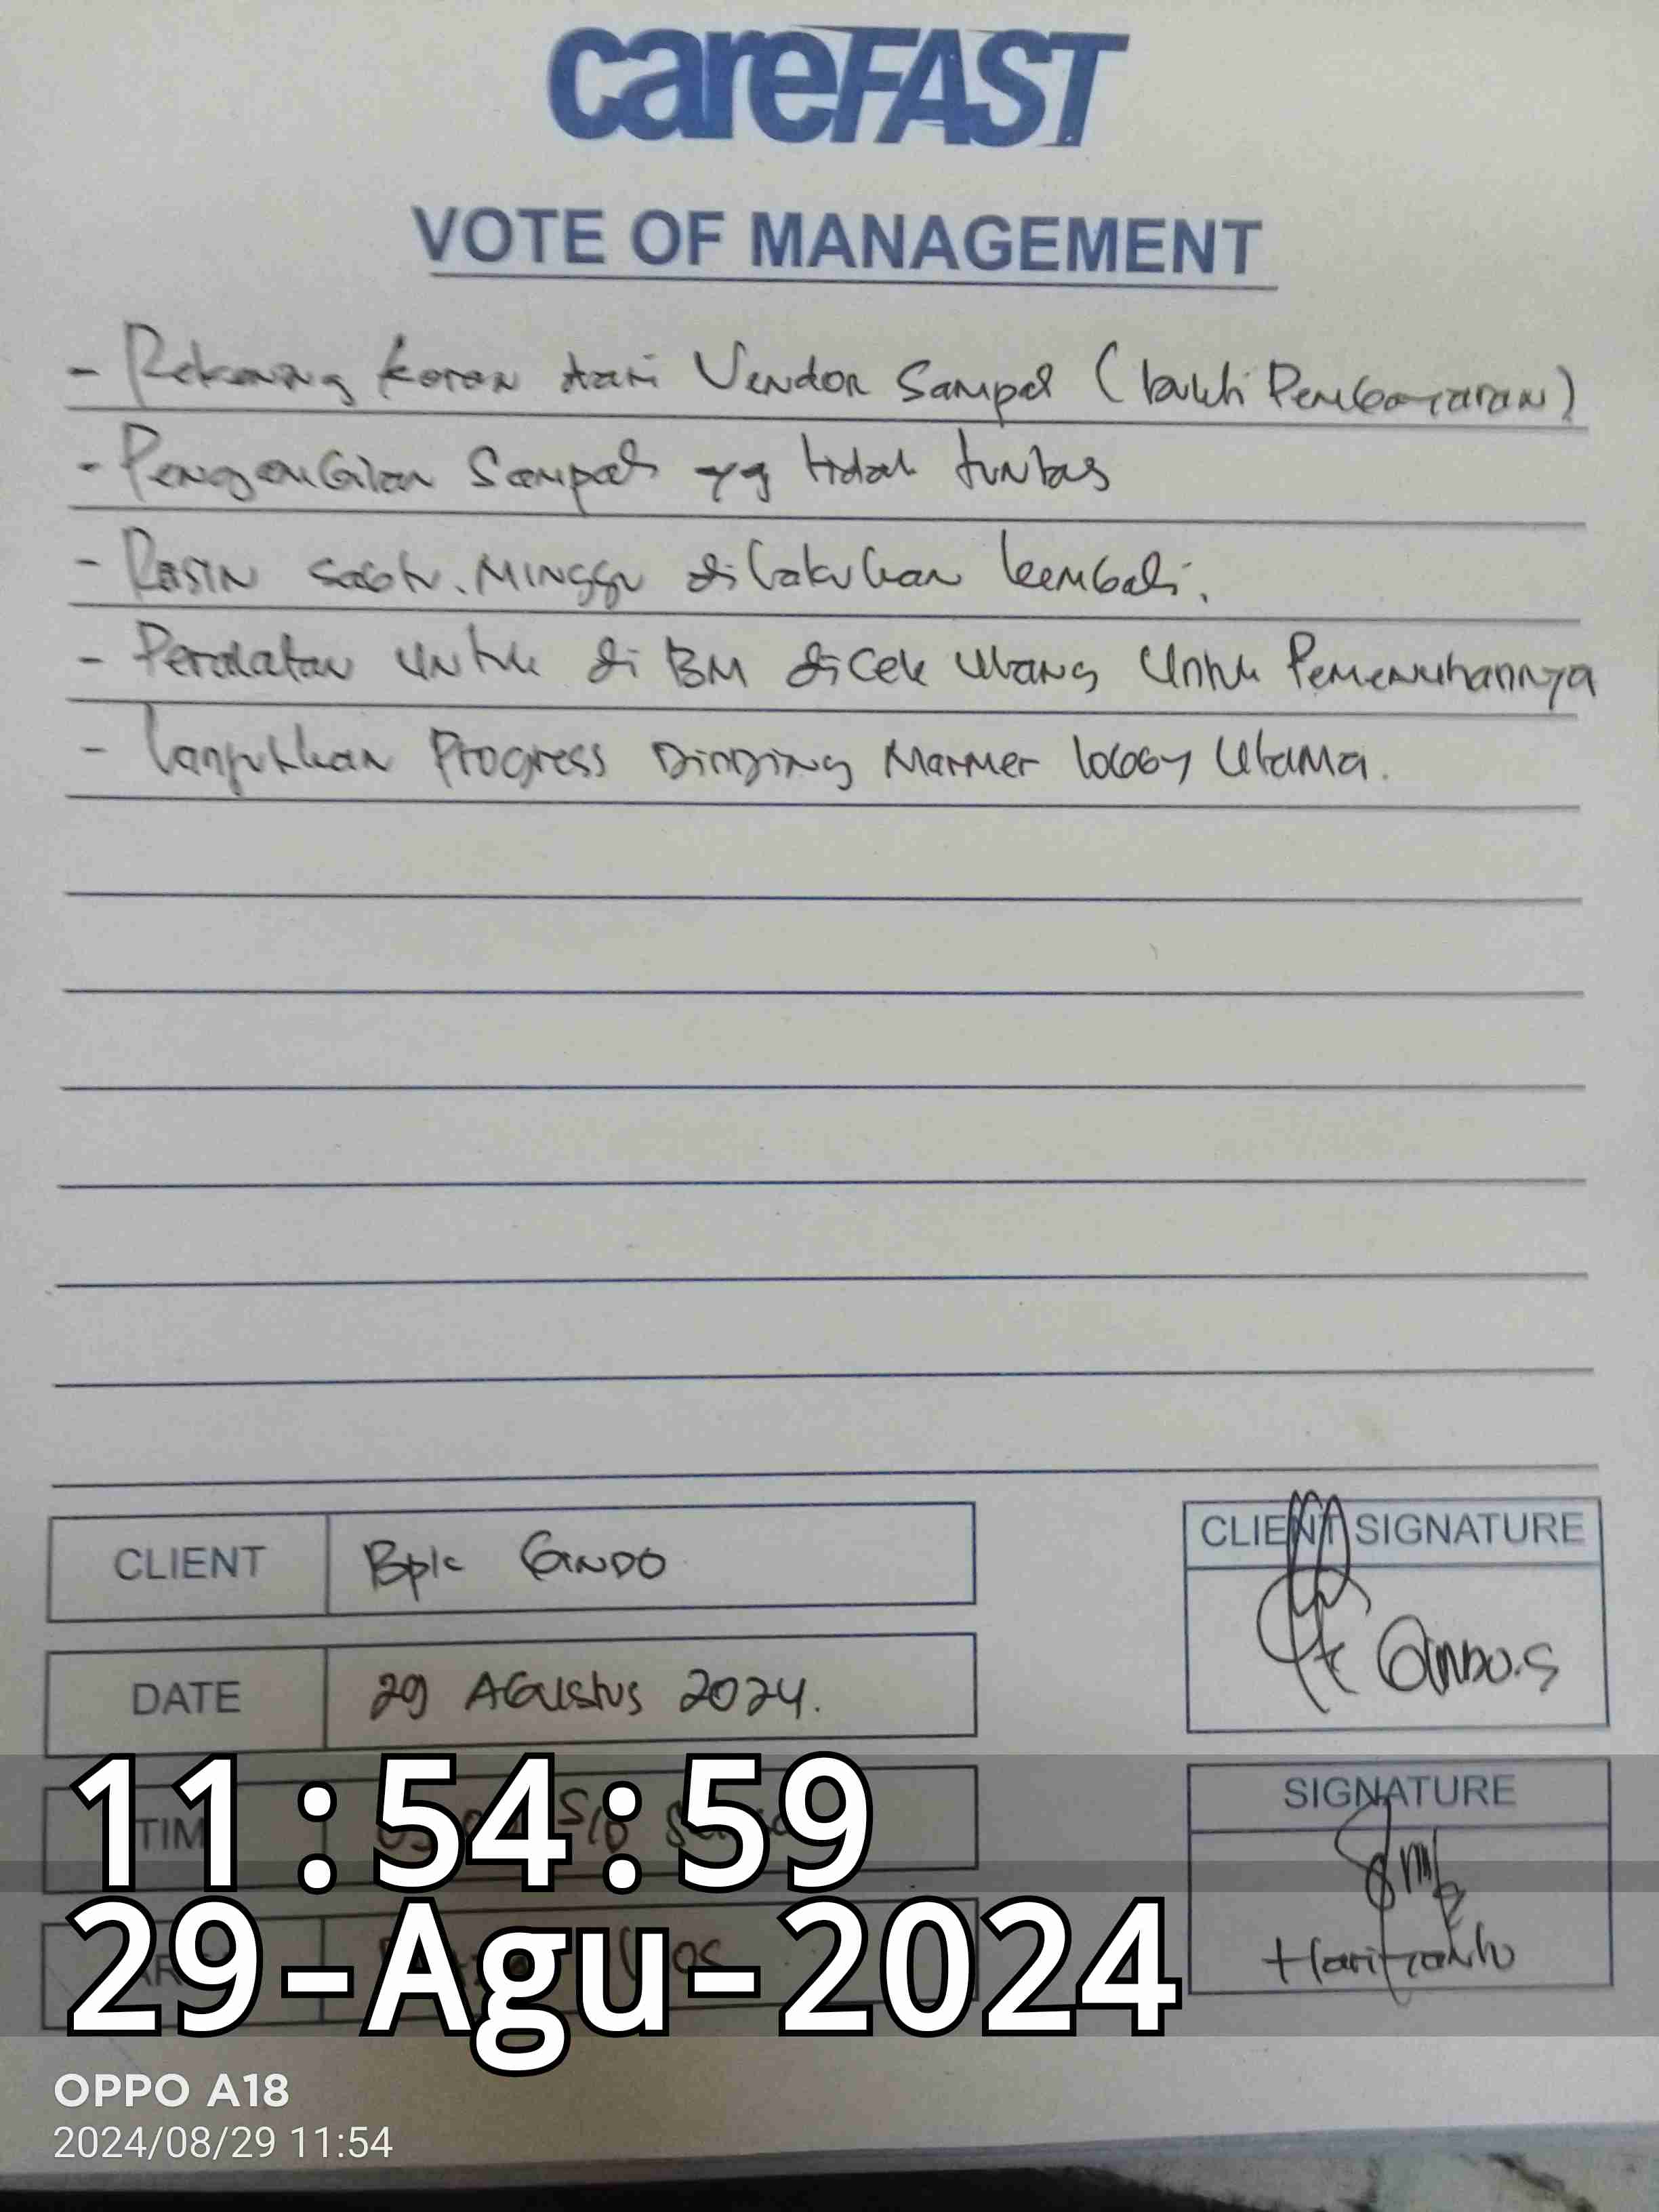 careFAST
VOTE OF MANAGEMENT
- Rekening koran dari Vendor Sampah (bukti Pembayaran)
- Pengambilan Sampah yg tidak tuntas
- Rasin sabtu. Minggu dilakukan kembali.
- Peralatan untuk di BM dicek ulang untuk Pemenuhannya
- lanjutkan Progress Dinding Marmer lobby Utama.
CLIENT Bpk GINDO
DATE 29 AGUSTUS 2024.
CLIENT SIGNATURE
GINDO.S
SIGNATURE
Hariyanto
11:54:59
29-Agu-2024
OPPO A18
2024/08/29 11:54